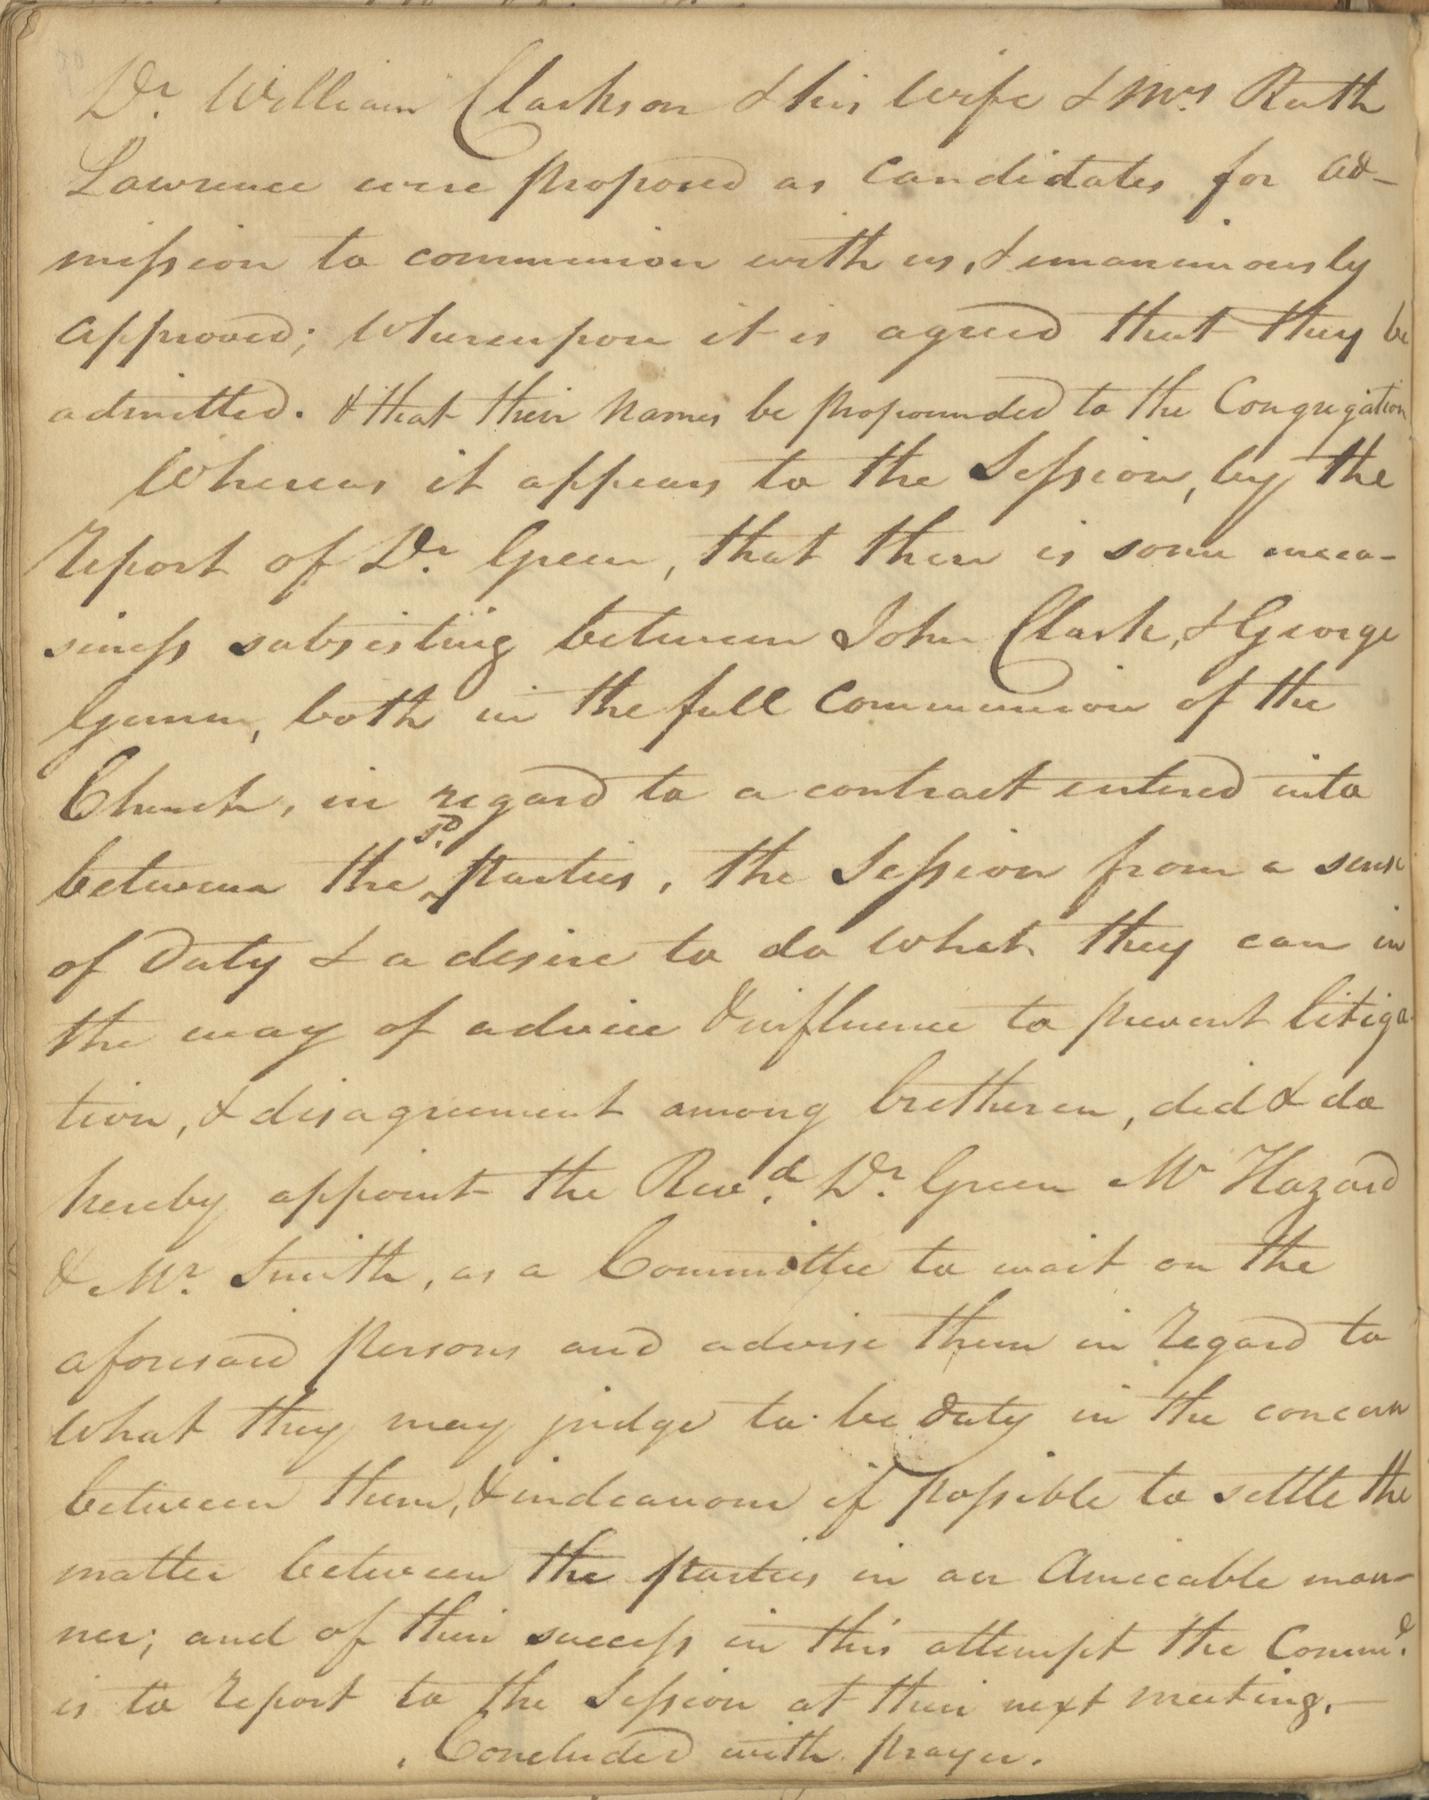 Dr. William Clarkson & his Wife & Mrs. Ruth
Lawrence were proposed as candidates for ad-
mission to communion with us, & unanimously
approved; Whereupon it is agreed that they be
admitted. & that their Names be propounded to the Congregation
Whereas it appears to the Session, by the
report of Dr. Green, that there is some unea-
siness subsisting between John Clark, & George
, both in the full Communion of the
Church, in regard to a contract entered into
between the sd. parties, the Session from a sense
of Duty & a desire to do what they can in
the way of advice & influence to prevent litiga-
tion, & disagreement among bretheren, did & do
hereby appoint the Revd. Dr. Green Mr Hazard
& Mr. Smith, as a Committee to wait on the
aforesaid persons and advise them in regard to
what they may judge to be duty in the concern
between them, & indeavour if possible to settle the
matter between the parties in an Amicable man-
ner; and of their success in this attempt the Comme.
is to report to the Session at their next meeting.—
Concluded with prayer.